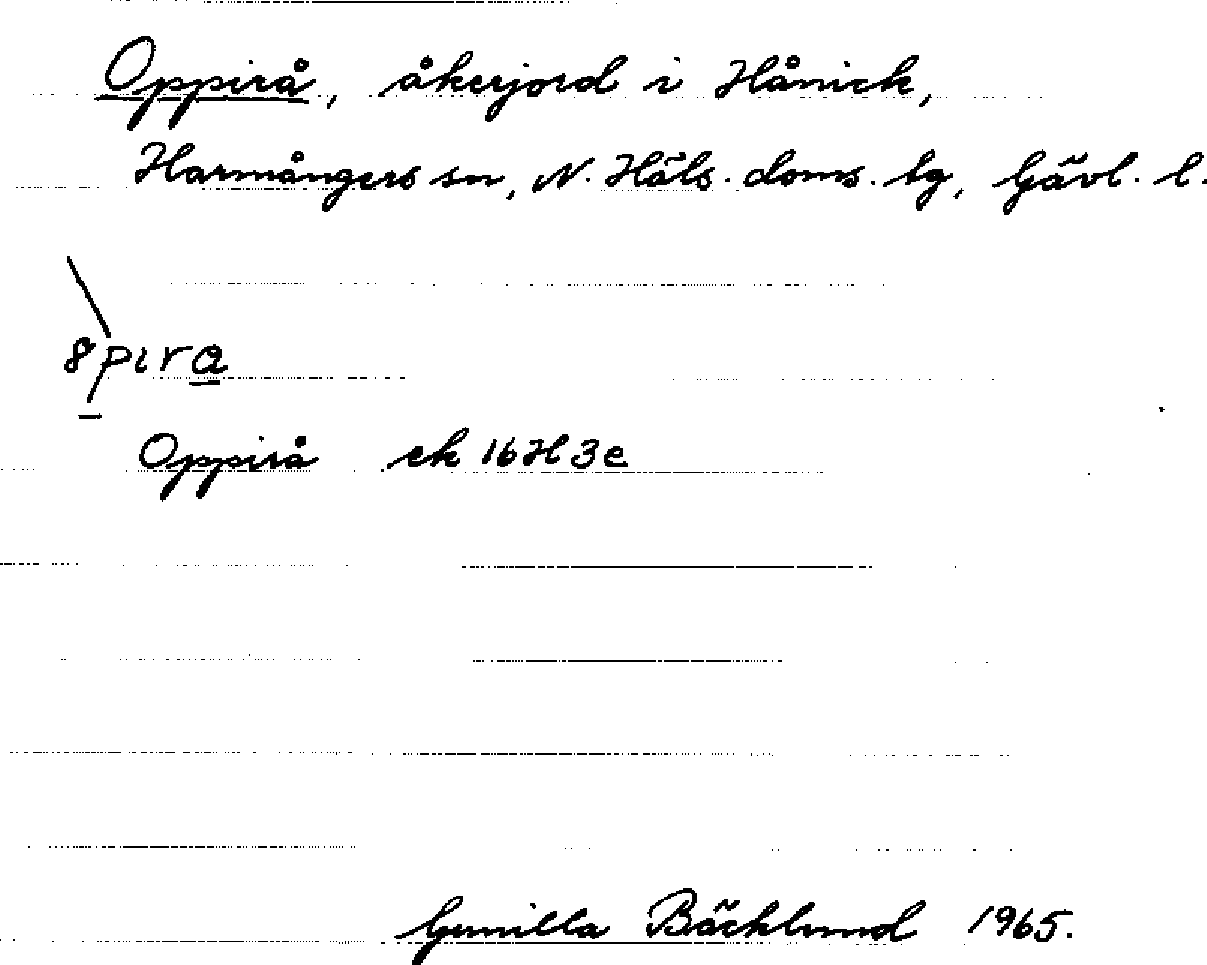 Oppirå, åkerjord i Hånick,
Harmångers sn, N. Häls. doms. tg, Gävl. l.
8pıra
Oppirå ek 16H3e
Gunilla Bäcklund 1965.